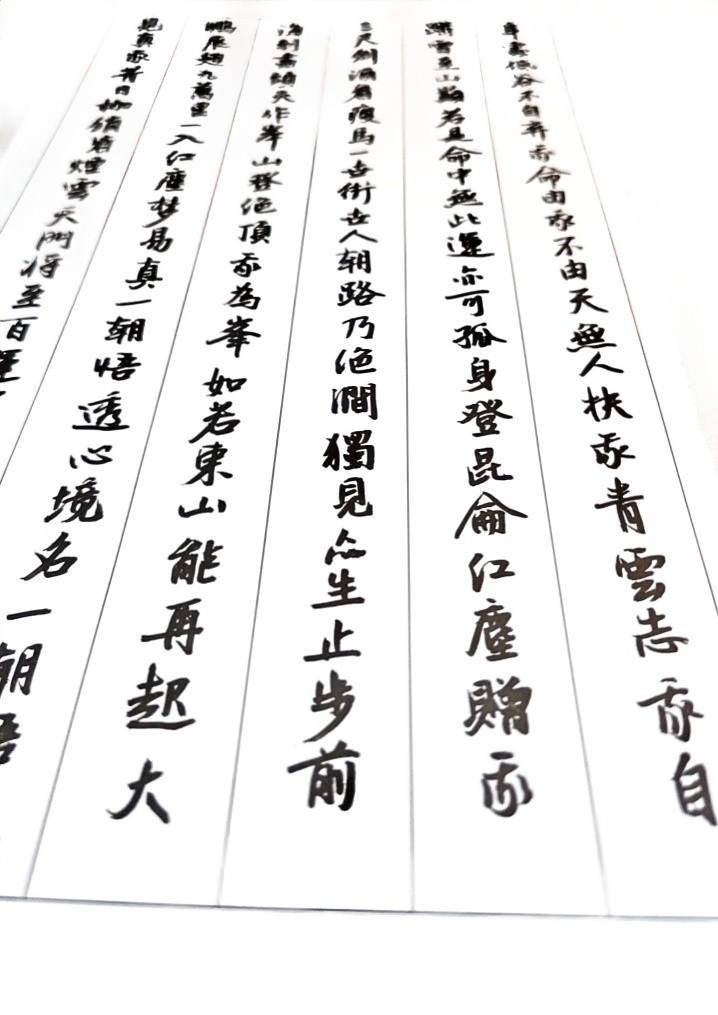 身處低谷不自棄我命由我不由天無人扶我青雲志我自
踏雪至山巔若是命中無此運亦可孤身登昆侖红塵贈我
三尺劍酒肩瘦馬一世街世人朝路乃绝澗獨見众生止步前
海到盡頭天作岸山登绝頂我為峯如若東山能再起大
鵬展翅九萬里一入红塵梦易真一朝悟透心境名一朝悟
見真我昔日枷鎖皆煙雲天門将至百運